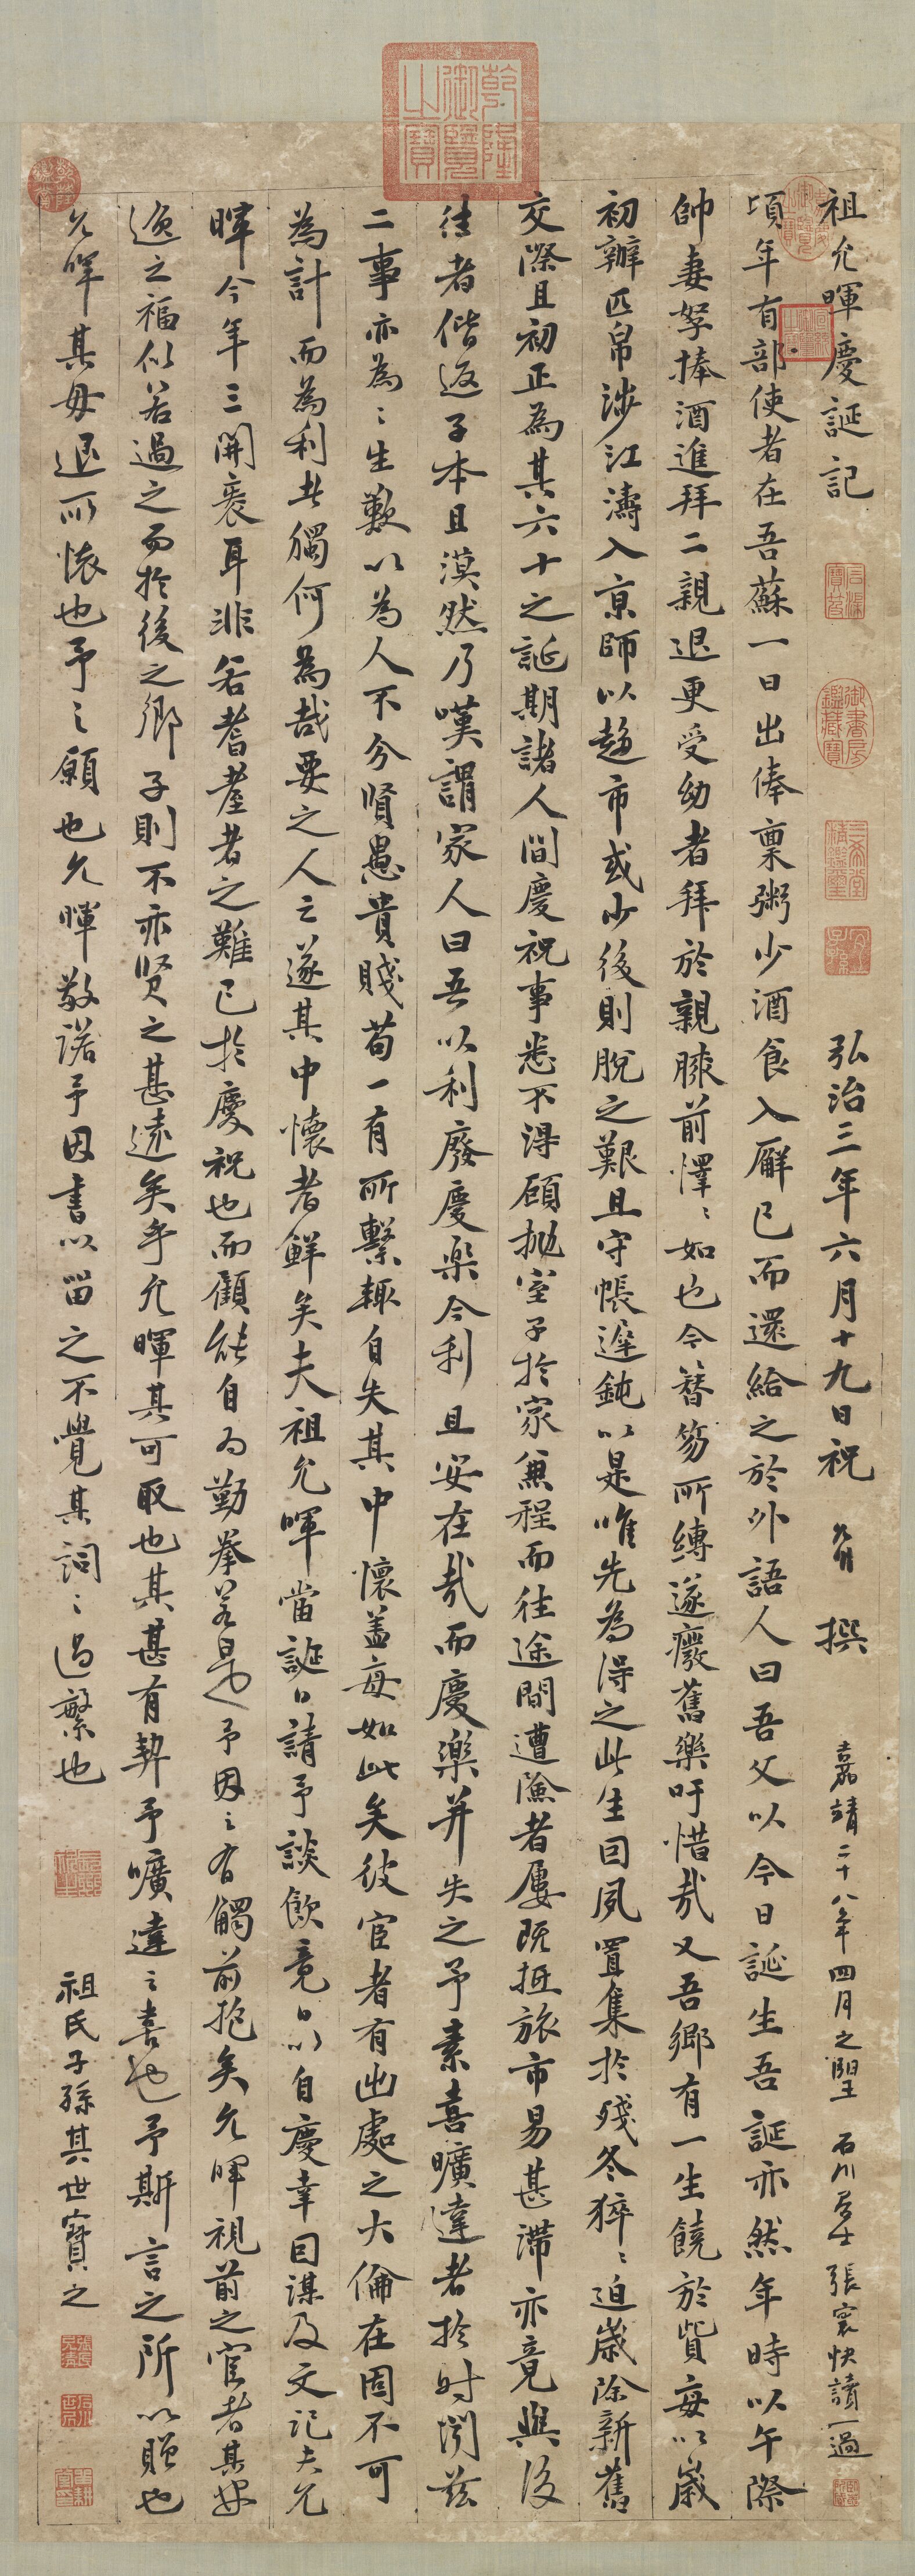 乾隆御覽之寶
祖允暉慶誕記
弘治三年六月十九日祝 允明 撰
嘉靖二十八年四月之望 石川居士張寰快讀一過
頃年有部使者在吾蘇一日出俸稟粥少酒食入廨已而還給之於外語人曰吾父以今日誕生吾誕亦然年時以午際
帥妻孥捧酒進拜二親退更受幼者拜於親膝前懌〻如也今簪笏所縛遂癈舊樂吁惜哉又吾鄉有一生饒於貲每以歲
初辦匹帛涉江濤入京師以趨市或少後則脫之艱且守帳遲鈍以是唯先為得之此生囙夙置集於殘冬猝〻迫歲除新舊
交際且初正為其六十之誕期諸人間慶祝事悉不得顧拋室子於家兼程而往途間遭險者屢既抵旅市易甚滯亦竟與後
往者偕返子本且漠然乃嘆謂家人曰吾以利廢慶樂今利且安在哉而慶樂并失之予素喜曠達者於時閔茲
二事亦為〻生歎以為人不分賢愚貴賤苟一有所繫輒自失其中懷盖每如此矣彼宦者有出處之大倫在固不可
為計而為利者獨何為哉要之人之遂其中懷者鮮矣夫祖允暉當誕日請予談飲竟日以自慶幸囙謀及文記夫允
暉今年三開袠耳非若耆耋者之難已於慶祝也而顧能自為勤拳若是予因之有觸前抱矣允暉視前之宦者其安
逸之福似若過之而於後之鄉子則不亦賢之甚遠矣乎允暉其可取也其甚有契予曠達之喜也予斯言之所以贈也
允暉其毋退所懷也予之願也允暉敬諾予因書以留之不覺其詞〻過繁也
祖氏子孫其世寶之